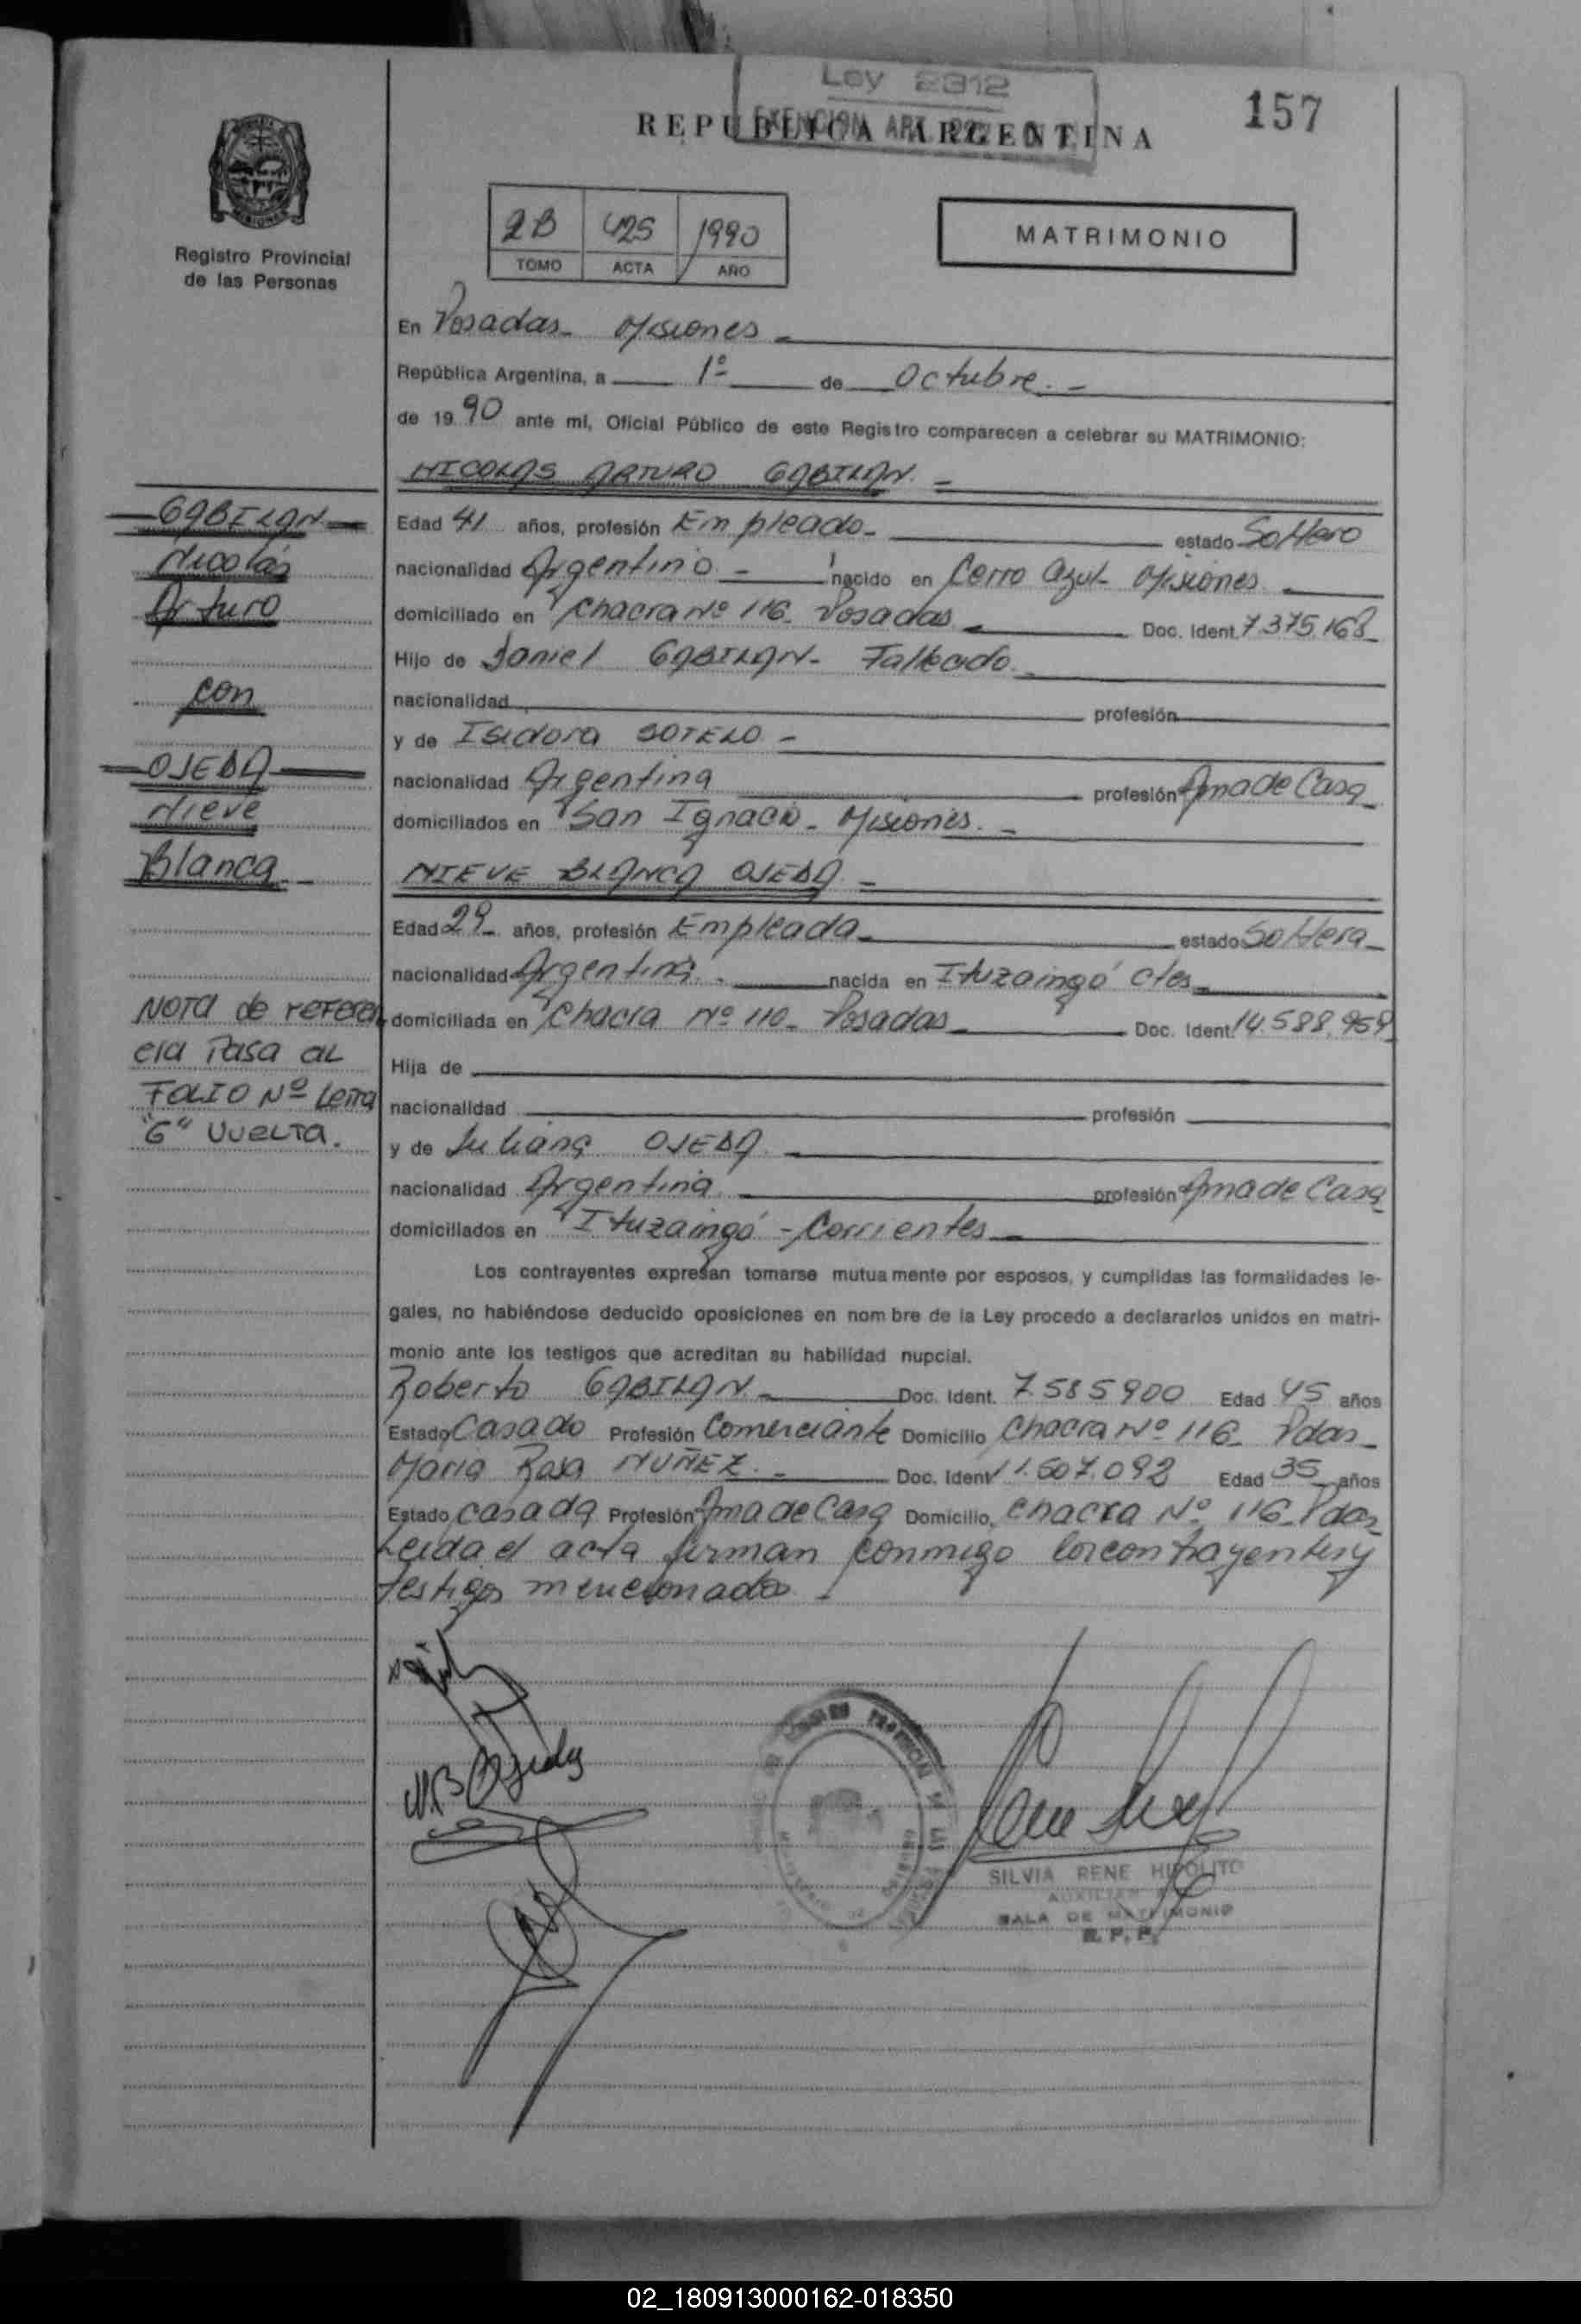 Ley 2312
EXENCION ART.
157
REPUBLICA ARGENTINA
Registro Provincial
de las Personas
2B 425 1990
TOMO ACTA AÑO
MATRIMONIO
En Posadas - Misiones -
República Argentina, a 1º de Octubre. -
de 1990 ante mi, Oficial Público de este Registro comparecen a celebrar su MATRIMONIO:
NICOLAS ARTURO GABILAN. -
Edad 41 años, profesión Empleado - estado Soltero
nacionalidad Argentino - nacido en Cerro Azul - Misiones
domiciliado en Chacra Nº 116 - Posadas - Doc. Ident. 7.375.168
Hijo de Daniel GABILAN - Fallecido
nacionalidad profesión
y de Isidora SOTELO -
nacionalidad Argentina profesión Ama de Casa
domiciliados en San Ignacio - Misiones. -
NIEVE BLANCA OJEDA -
Edad 29 años, profesión Empleada - estado Soltera -
nacionalidad Argentina. nacida en Ituzaingó Ctes -
domiciliada en Chacra Nº 110 - Posadas - Doc. Ident. 14.588.959
Hija de
nacionalidad profesión
y de Juliana OJEDA. -
nacionalidad Argentina profesión Ama de Casa
domiciliados en Ituzaingó - Corrientes -
Los contrayentes expresan tomarse mutuamente por esposos, y cumplidas las formalidades le-
gales, no habiéndose deducido oposiciones en nombre de la Ley procedo a declararlos unidos en matri-
monio ante los testigos que acreditan su habilidad nupcial.
Roberto GABILAN - Doc. Ident. 7.585.900 Edad 45 años
Estado Casado Profesión Comerciante Domicilio Chacra Nº 116 - Pdas -
Maria Rosa NUÑEZ. - Doc. Ident. 11.507.092 Edad 35 años
Estado Casada Profesión Ama de Casa Domicilio Chacra Nº 116 - Pdas
Leida el acta firman conmigo los contrayentes y
testigos mencionados
GABILAN
Nicolás
Arturo
con
OJEDA
Nieve
Blanca
NOTA de referen
cia Pasa al
FOLIO Nº Letra
"G" Vuelta.
N B Ojeda
SILVIA RENE HIPOLITO
AUXILIAR
SALA DE MATRIMONIO
R. P. P.
02_180913000162-018350